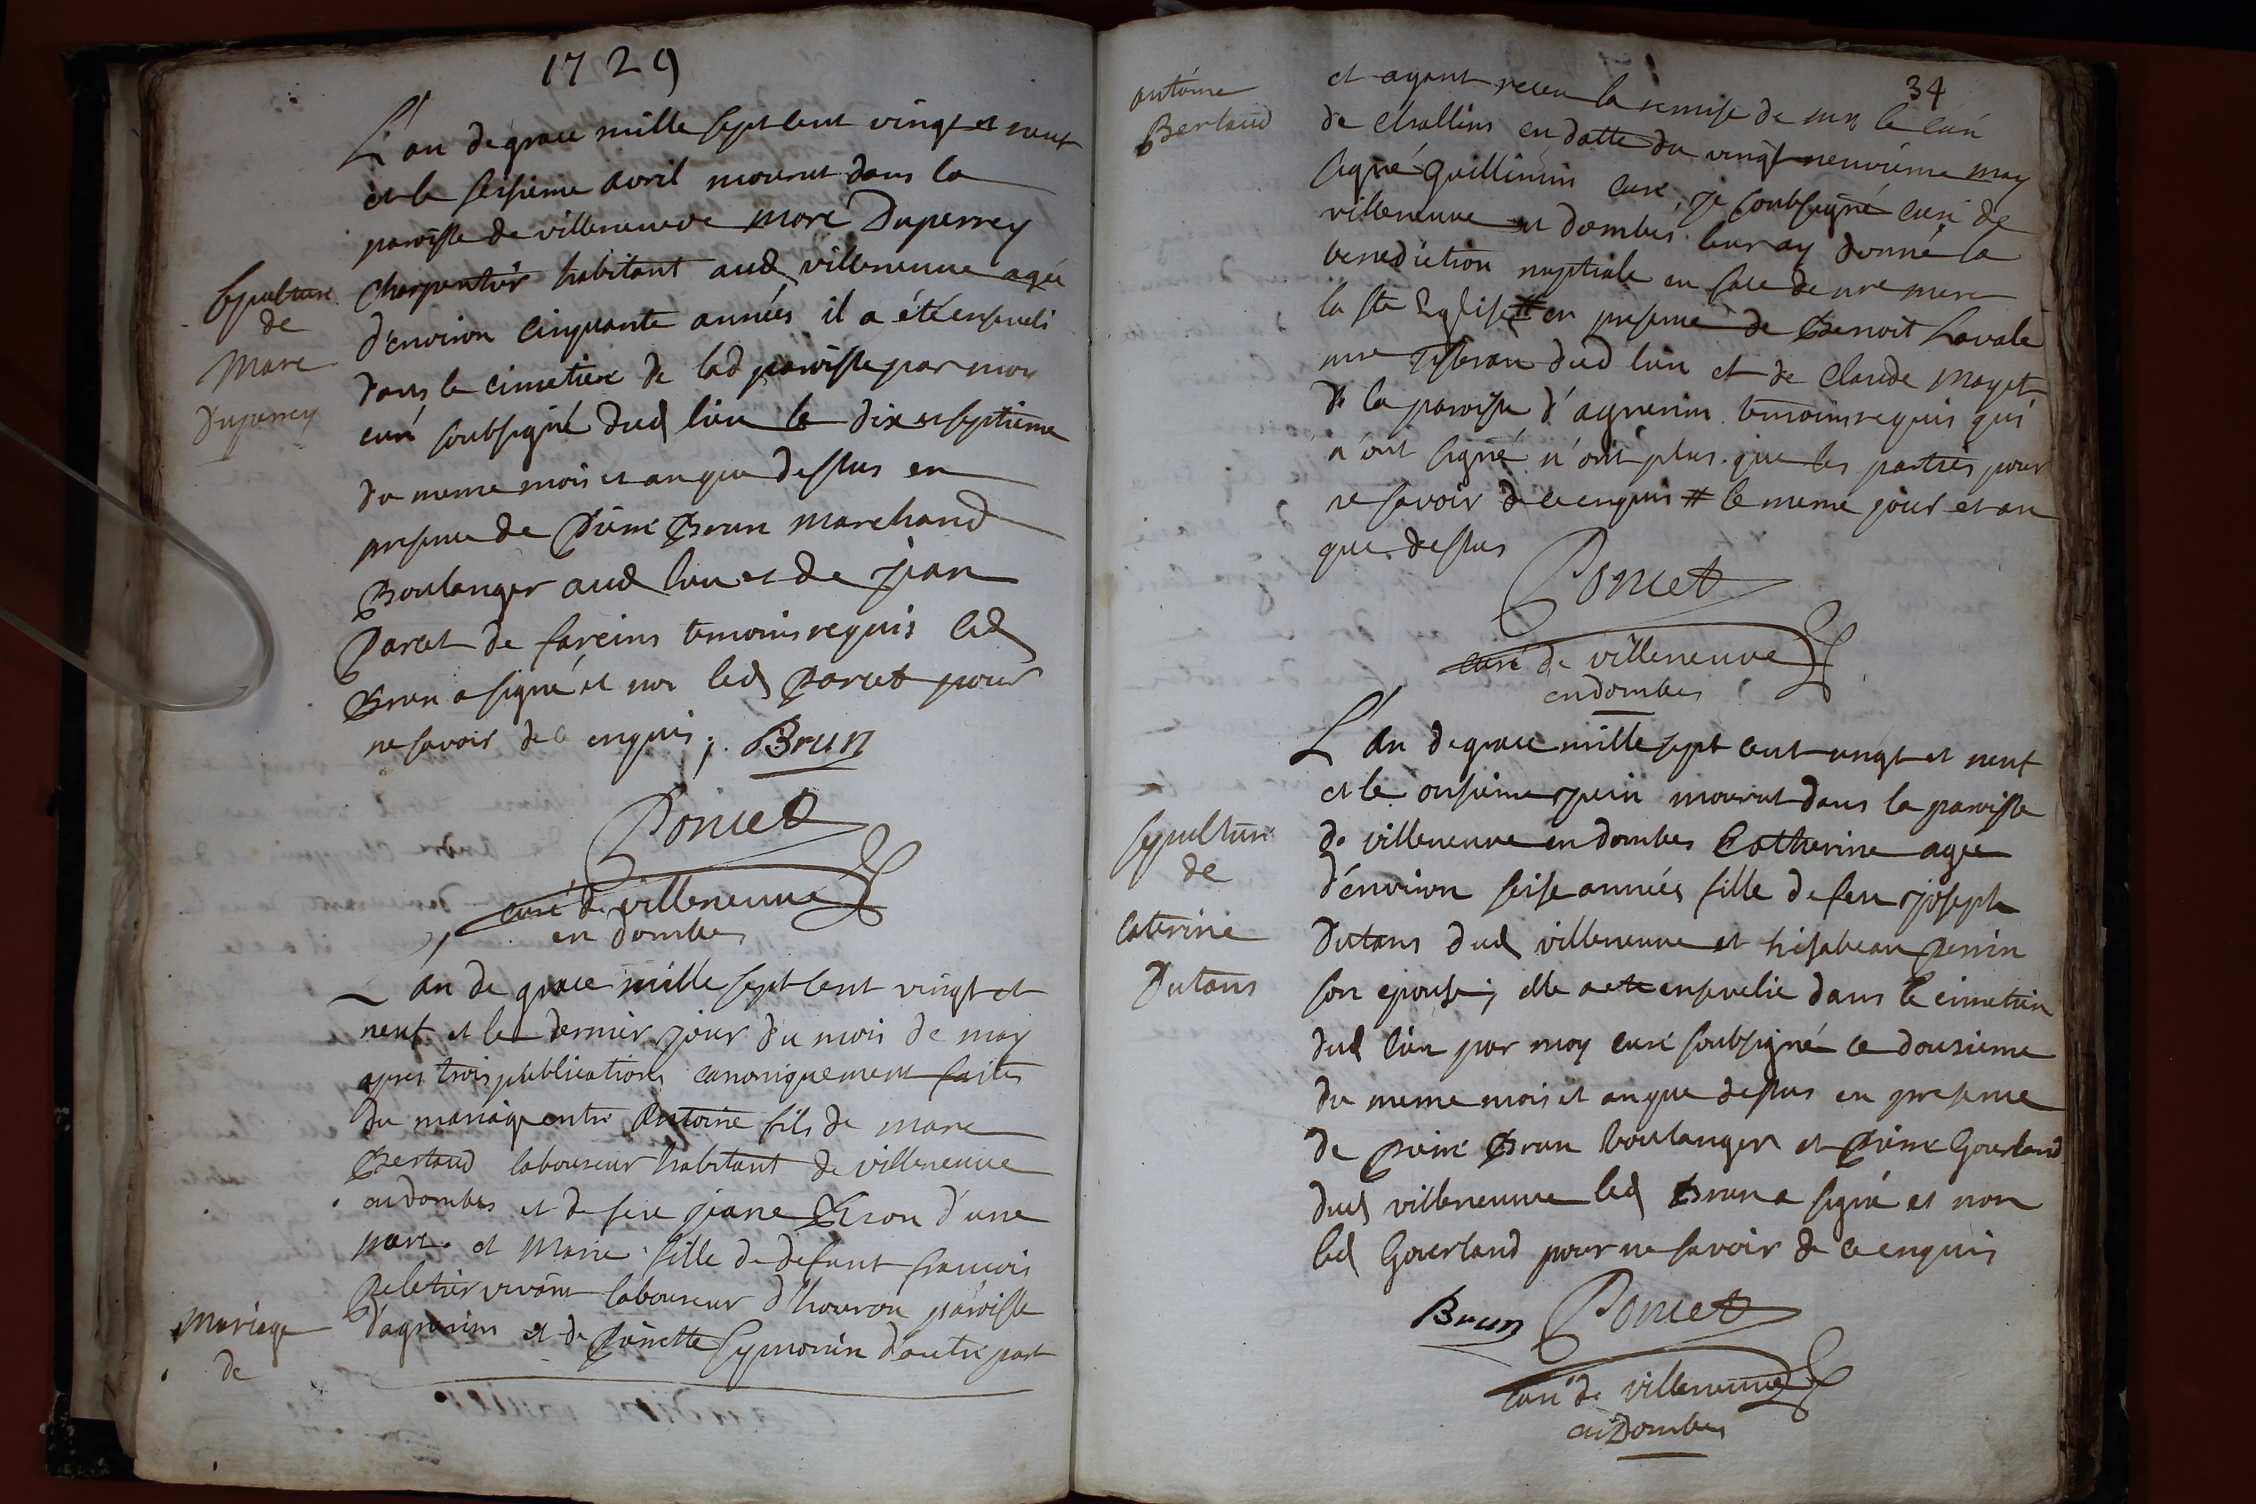 1729
L'an de grace mille sept cent vingt et neuf
et le seisieme avril mourut dans la
paroisse de villeneuve Marc Duperrey
Charpentier habitant aud villeneuve agée
d'environ cinquante années il a été enseveli
dans le cimetiere de lad paroisse par moy
curé soubsigné dud lieu le dix et septieme
du meme mois et an que dessus en
presence de Pierre Brun marchand
Boulanger aud lieu et de jean
Paret de fareins temoins requis led
Brun a signé et non led Paret pour
ne savoir de ce enquis ;. Brun
Poncet
curé de villeneuve
en dombes
Sepulture
de
Marc
Duperrey
L'an de grace mille sept cent vingt et
neuf et le dernier jour du mois de may
apres trois publications canoniquement faites
du mariage entre Antoine fils de marc
Bertaud laboureur habitant de villeneuve
en dombes et de feue jeane d'une
part. et Marie fille de defunt francois
Peletier vivant laboureur d'houron paroisse
d'agnerins et de Pierrette Symonin d'autre part
Mariage
de
34
antoine
Bertaud
et ayant receu la remise de mr le curé
de challins en datte du vingt neuvieme may
signé Guillimin curé, je soubsigné curé de
villeneuve en dombes leur ay donné la
benediction nuptiale en face de nre mere
la ste Eglise # en presence de Benoit Lavale
tisseran dud lieu et de Claude Mayet
de la paroisse d'agnerin temoins requis qui
n'ont signé n'ont plus que les parties pour
ne savoir de ce enquis # le meme jour et an
que dessus
Poncet
curé de villeneuve
en dombes
L'an de grace mille sept cent vingt et neuf
et le onsieme juin mourut dans la paroisse
de villeneuve en dombes Catherine agee
d'environ seise années fille de feu joseph
Dutans dud villeneuve et hisabeau Perrin
son epouse; elle a ete ensevelie dans le cimetiere
dud lieu par moy curé soubsigné ce dousieme
du meme mois et an que dessus en presence
de Pierre Brun boulanger et Pierre Gourland
dud villeneuve led Brun a signé et non
led Gourland pour ne savoir de ce enquis
Brun Poncet
curé de villeneuve
en Dombes
sepulture
de
Caterine
Dutans